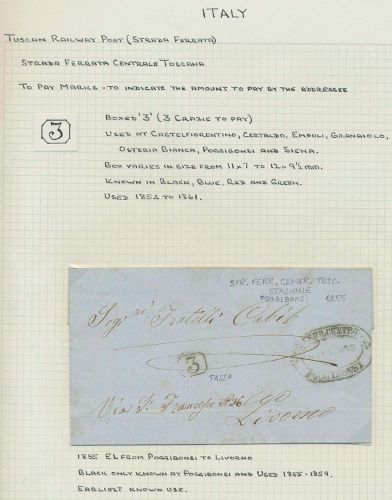 ITALY
TUSCAN RAILWAY POST (STRADA FERRATA)
STRADA FERRATA CENTRALE TOSCANA
TO PAY MARKS - TO INDICATE THE AMOUNT TO PAY BY THE ADDRESSEE
3
BOXED '3' (3 CRAZIE TO PAY)
USED AT CASTELFIORENTINO, CERTALDO, EMPOLI, GRANAIOLO,
OSTERIA BIANCA, POGGIBONSI AND SIENA.
BOX VARIES IN SIZE FROM 11 x 7 TO 12 x 9½ mm.
KNOWN IN BLACK, BLUE, RED AND GREEN.
USED 1853 TO 1861.
STR. FERR. CENTR. TOSC.
STAZIONE
POGGIBONSI 1855
Sigri Fratelli
3
TASSA
POGGIBONSI
Via S. Francesco
Livorno
1855 EL FROM POGGIBONSI TO LIVORNO
BLACK ONLY KNOWN AT POGGIBONSI AND USED 1855-1859.
EARLIEST KNOWN USE.